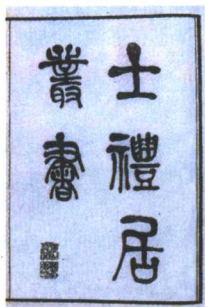 士禮居
叢書